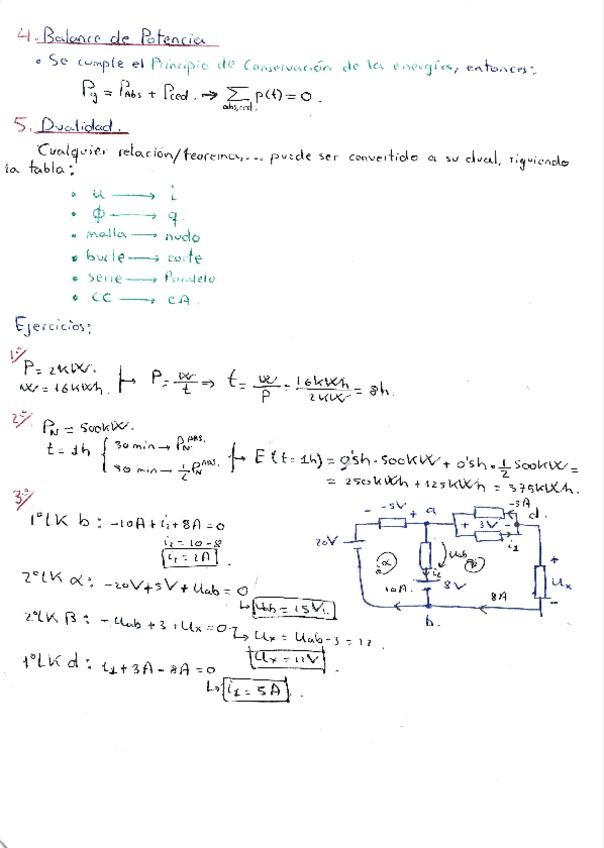 4. Balance de Potencia
• Se cumple el Principio de Conservación de la energía, entonces:
Pg = PAbs + Pced. → ∑ p(t) = 0.
5. Dualidad.
Cualquier relación/teorema,... puede ser convertido a su dual, siguiendo
la tabla:
• u → i
• ϕ → q
• malla → nudo
• bucle → corte
• serie → Paralelo
• CC → CA.
Ejercicios:
1º/
P = 2KW.
W = 16KWh. P = W/t ⇒ t = W/P = 16KWh/2KW = 8h.
2º/
PN = 500KW.
t = 1h { 30 min → PN ABS.
30 min → 1/2 PN ABS. E(t=1h) = 0'5h · 500KW + 0'5h · 1/2 500KW =
= 250KWh + 125KWh = 375KWh.
3º/
1ºLK b: -10A + i2 + 8A = 0
i2 = 10 - 8
i2 = 2A
2ºLK α: -20V + 5V + Uab = 0
Uab = 15V.
2ºLK β: -Uab + 3 + Ux = 0
Ux = Uab - 3 = 12
Ux = 12V.
1ºLK d: i1 + 3A - 8A = 0
i1 = 5A.
-3A
- 5V + a + 3V - d.
i1
20V
α Uab β + Ux -
i2
10A 8V
8A
b.